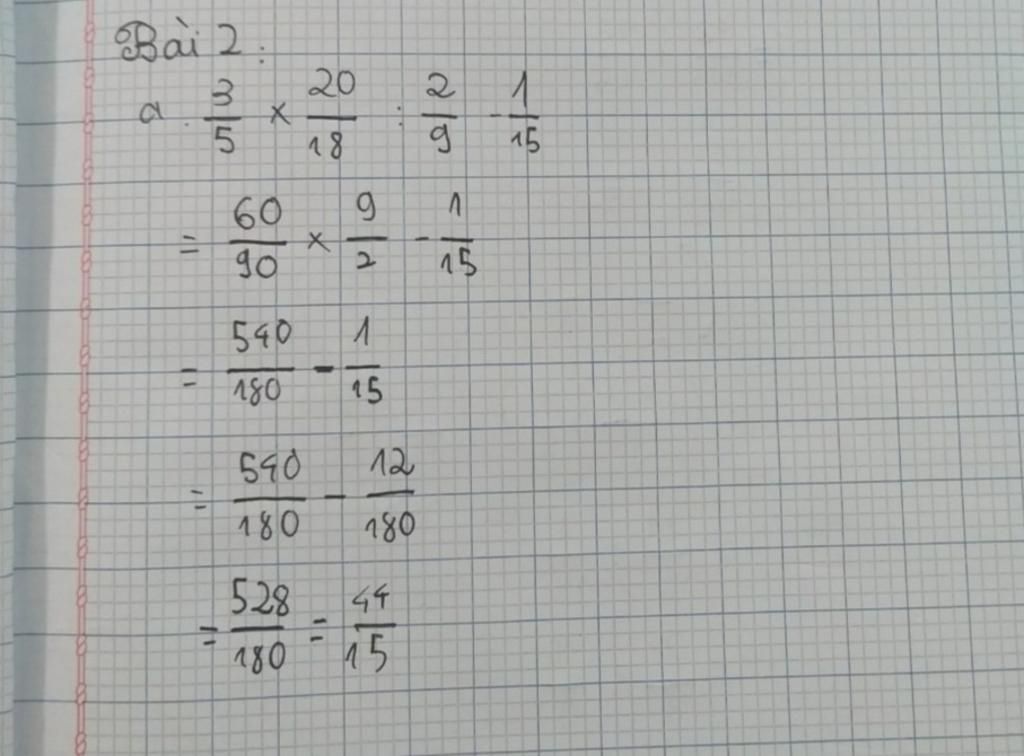 Bài 2:
a. 3/5 × 20/18 : 2/9 - 1/15
= 60/90 × 9/2 - 1/15
= 540/180 - 1/15
= 540/180 - 12/180
= 528/180 = 44/15